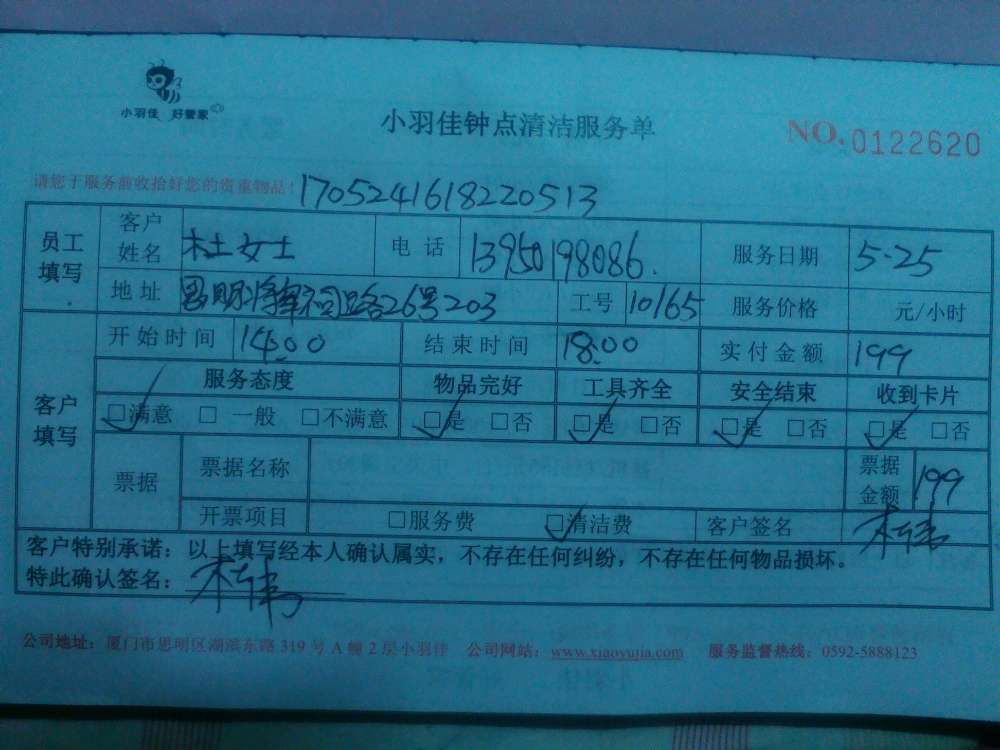 小羽佳 好管家
小羽佳钟点清洁服务单
NO.0122620
请您于服务前收拾好您的贵重物品!
1705241618220513
员工填写 客户姓名 杜女士 电话 13950198086. 服务日期 5·25
地址 思明 26号203 工号 10165 服务价格 元/小时
客户填写 开始时间 14:00 结束时间 18:00 实付金额 199
服务态度 物品完好 工具齐全 安全结束 收到卡片
☑满意 □一般 □不满意 ☑是 □否 ☑是 □否 ☑是 □否 ☑是 □否
票据 票据名称 票据金额 199
开票项目 □服务费 ☑清洁费 客户签名
客户特别承诺:以上填写经本人确认属实,不存在任何纠纷,不存在任何物品损坏。
特此确认签名:
公司地址:厦门市思明区湖滨东路319号A幢2层小羽佳 公司网站:www.xiaoyujia.com 服务监督热线:0592-5888123